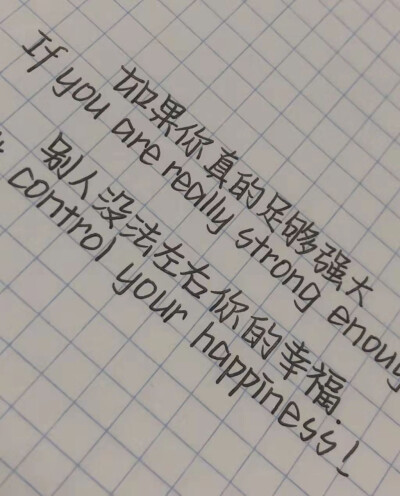 如果你真的足够强大
If you are really strong
别人没法左右你的幸福.
control your happiness!